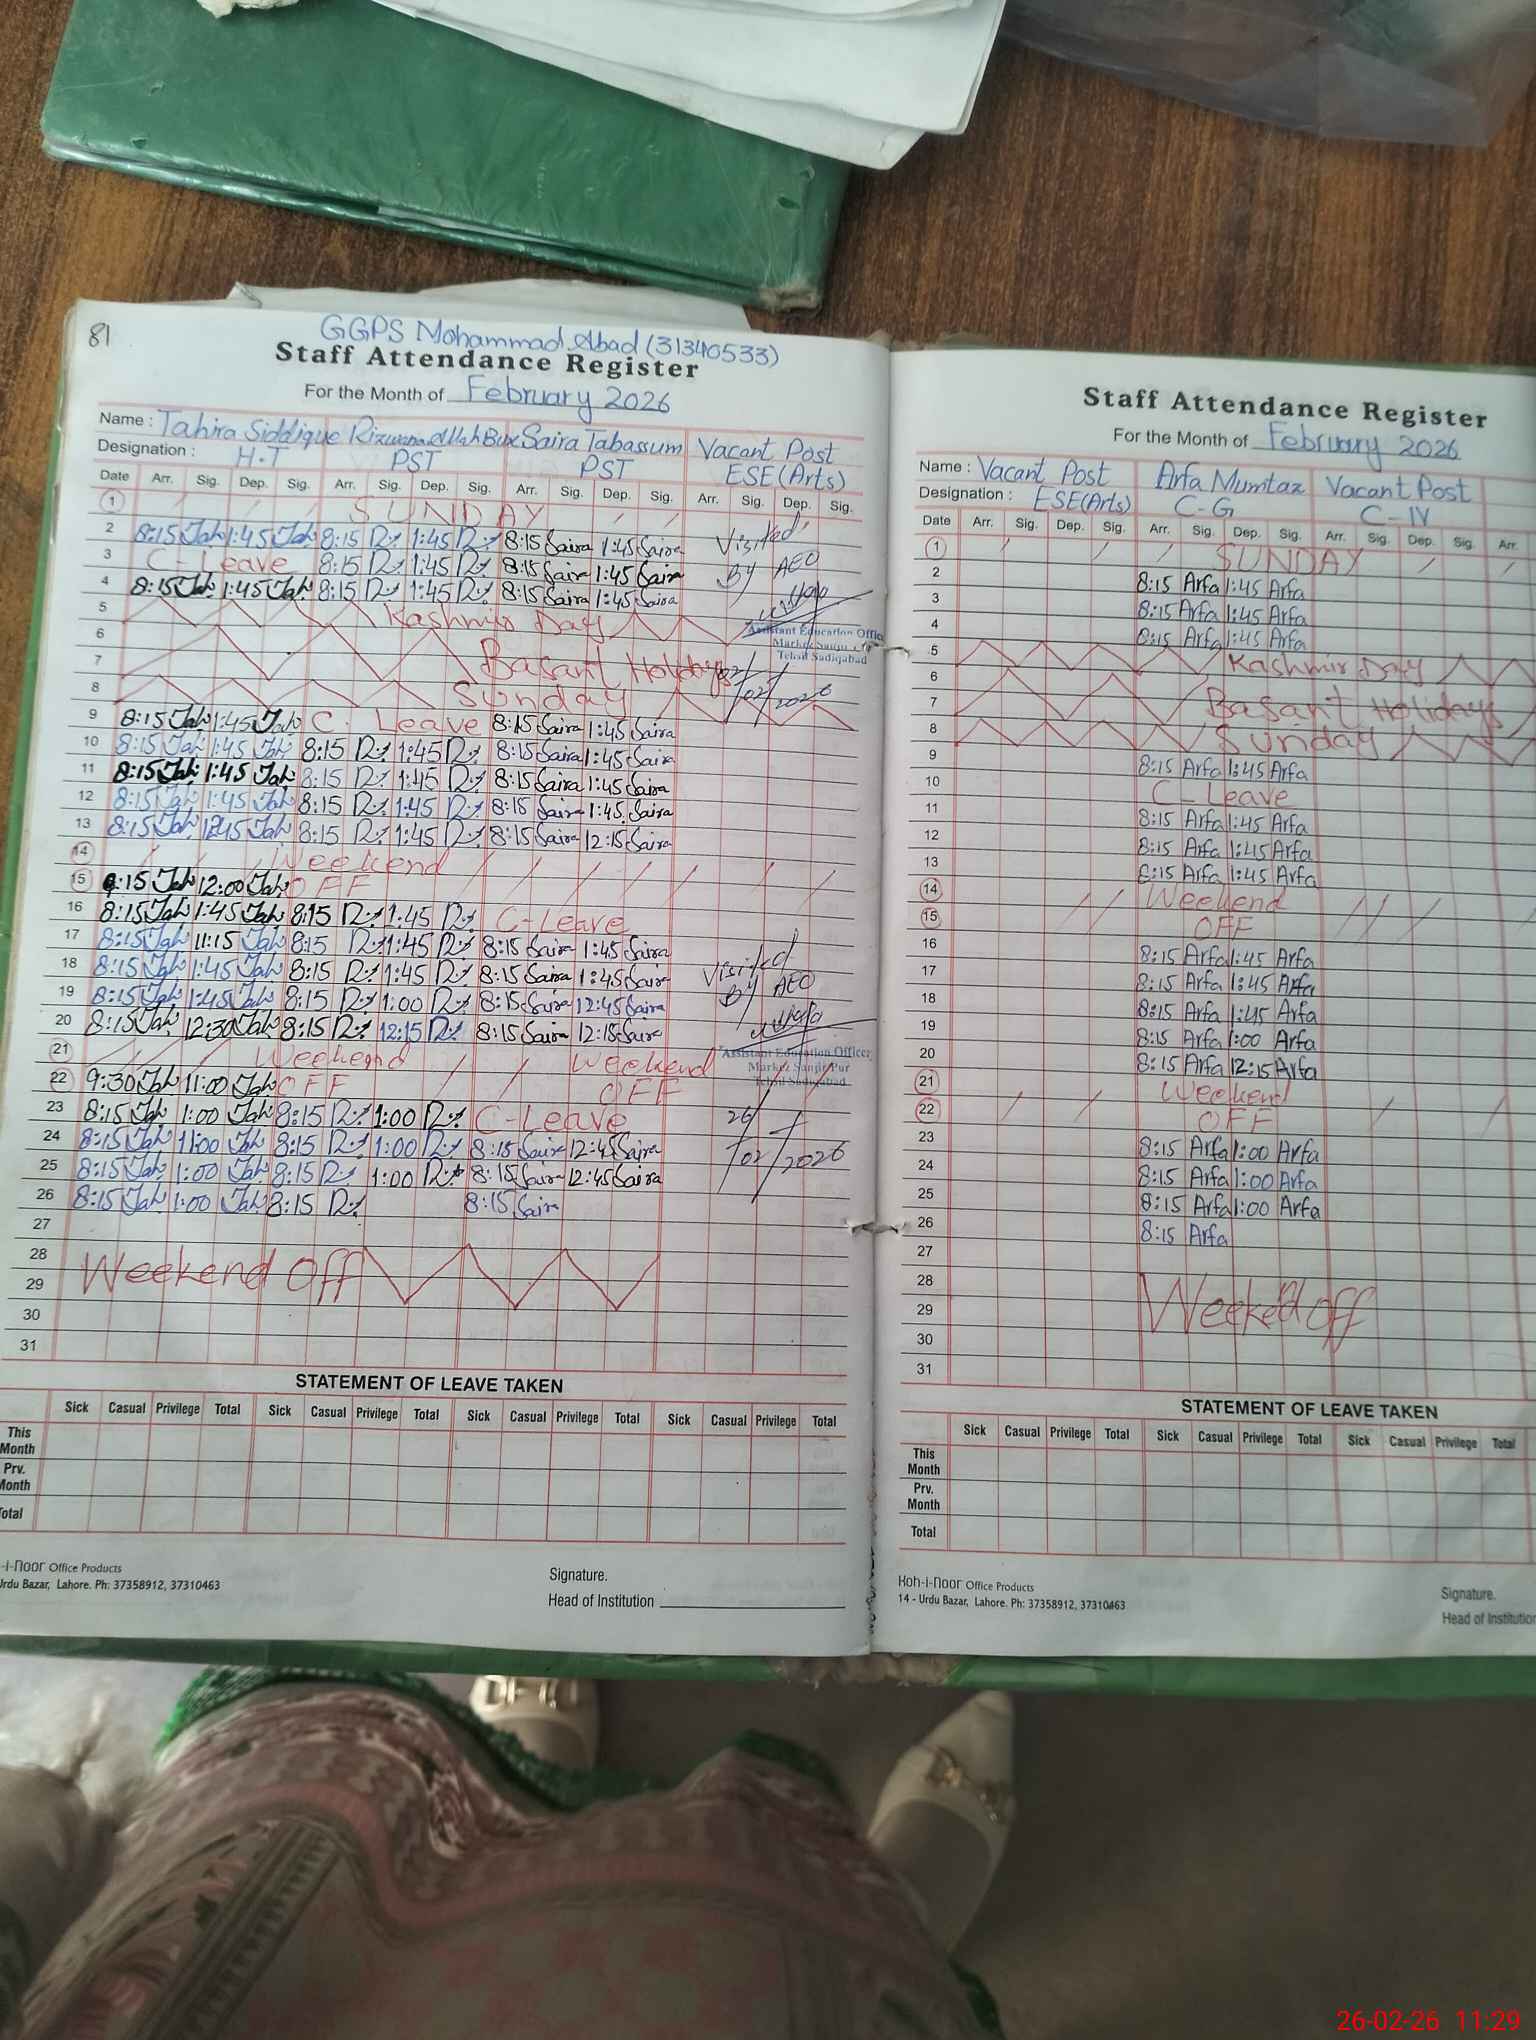 81
GGPS Mohammad Abad (31340533)
Staff Attendance Register
For the Month of February 2026
Name : Tahira Siddique Rizwana Allah Bux Saira Tabassum Vacant Post
Designation : H.T PST PST ESE(Arts)
Date Arr. Sig. Dep. Sig. Arr. Sig. Dep. Sig. Arr. Sig. Dep. Sig. Arr. Sig. Dep. Sig.
1 SUNDAY
2 8:15 Tah 1:45 Tah 8:15 R 1:45 R 8:15 Saira 1:45 Saira Visited
3 C - Leave 8:15 R 1:45 R 8:15 Saira 1:45 Saira By AEO
4 8:15 Tah 1:45 Tah 8:15 R 1:45 R 8:15 Saira 1:45 Saira
5 Kashmir Day Assistant Education Officer
6 Markez Sanjar Pur
Tehsil Sadiqabad
7 Basant Holidays 02/02/2026
8 Sunday
9 8:15 Tah 1:45 Tah C. Leave 8:15 Saira 1:45 Saira
10 8:15 Tah 1:45 Tah 8:15 R 1:45 R 8:15 Saira 1:45 Saira
11 8:15 Tah 1:45 Tah 8:15 R 1:45 R 8:15 Saira 1:45 Saira
12 8:15 Tah 1:45 Tah 8:15 R 1:45 R 8:15 Saira 1:45 Saira
13 8:15 Tah 12:45 Tah 8:15 R 1:45 R 8:15 Saira 12:15 Saira
14 Weekend
15 9:15 Tah 12:00 Tah OFF
16 8:15 Tah 1:45 Tah 8:15 R 1:45 R C-Leave
17 8:15 Tah 11:15 Tah 8:15 R 1:45 R 8:15 Saira 1:45 Saira Visited
18 8:15 Tah 1:45 Tah 8:15 R 1:45 R 8:15 Saira 1:45 Saira By AEO
19 8:15 Tah 1:45 Tah 8:15 R 1:00 R 8:15 Saira 12:45 Saira
20 8:15 Tah 12:30 Tah 8:15 R 12:15 R 8:15 Saira 12:15 Saira
21 Weekend Weekend Assistant Education Officer
Markez Sanjar Pur
22 9:30 Tah 11:00 Tah OFF OFF Tehsil Sadiqabad
23 8:15 Tah 1:00 Tah 8:15 R 1:00 R C-Leave 26/02/2026
24 8:15 Tah 11:00 Tah 8:15 R 1:00 R 8:15 Saira 12:45 Saira
25 8:15 Tah 1:00 Tah 8:15 R 1:00 R 8:15 Saira 12:45 Saira
26 8:15 Tah 1:00 Tah 8:15 R 8:15 Saira
27
28 Weekend Off
29
30
31
STATEMENT OF LEAVE TAKEN
Sick Casual Privilege Total Sick Casual Privilege Total Sick Casual Privilege Total Sick Casual Privilege Total
This
Month
Prv.
Month
Total
-i-Noor Office Products
Urdu Bazar, Lahore. Ph: 37358912, 37310463
Signature.
Head of Institution
Staff Attendance Register
For the Month of February 2026
Name : Vacant Post Arfa Mumtaz Vacant Post
Designation : ESE(Arts) C-G C-IV
Date Arr. Sig. Dep. Sig. Arr. Sig. Dep. Sig. Arr. Sig. Dep. Sig. Arr.
1 SUNDAY
2 8:15 Arfa 1:45 Arfa
3 8:15 Arfa 1:45 Arfa
4 8:15 Arfa 1:45 Arfa
5 Kashmir Day
6
7 Basant Holidays
8 Sunday
9 8:15 Arfa 1:45 Arfa
10 C-Leave
11 8:15 Arfa 1:45 Arfa
12 8:15 Arfa 1:45 Arfa
13 8:15 Arfa 1:45 Arfa
14 Weekend
15 OFF
16 8:15 Arfa 1:45 Arfa
17 8:15 Arfa 1:45 Arfa
18 8:15 Arfa 1:45 Arfa
19 8:15 Arfa 1:00 Arfa
20 8:15 Arfa 12:15 Arfa
21 Weekend
22 OFF
23 8:15 Arfa 1:00 Arfa
24 8:15 Arfa 1:00 Arfa
25 8:15 Arfa 1:00 Arfa
26 8:15 Arfa
27
28
29 Weekend Off
30
31
STATEMENT OF LEAVE TAKEN
Sick Casual Privilege Total Sick Casual Privilege Total Sick Casual Privilege Total
This
Month
Prv.
Month
Total
Koh-i-Noor Office Products
14 - Urdu Bazar, Lahore. Ph: 37358912, 37310463
Signature.
Head of Institution
26-02-26 11:29